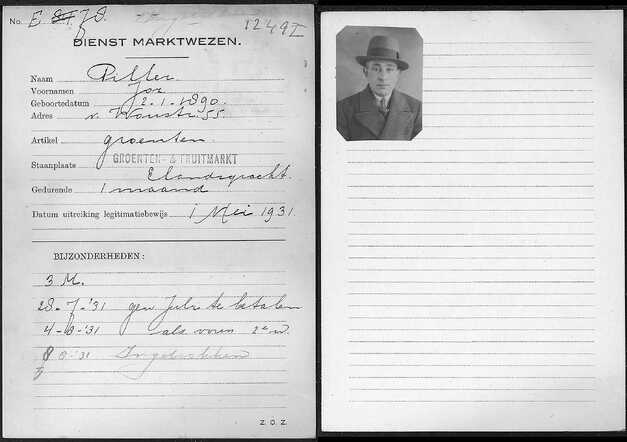 No. E 78.
1249 I
DIENST MARKTWEZEN.
Naam Pilfer
Voornamen Joz
Geboortedatum 2.1.1890.
Adres v. Woustr. 55
Artikel groenten.
GROENTEN- & FRUITMARKT
Staanplaats Elandsgracht.
Gedurende 1 maand
Datum uitreiking legitimatiebewijs 1 Mei 1931.
BIJZONDERHEDEN:
3 M.
28-7-'31 gew. te betalen
4-8-'31 als voren 2e w.
8 8-'31 Ingetrokken
Z.O.Z.